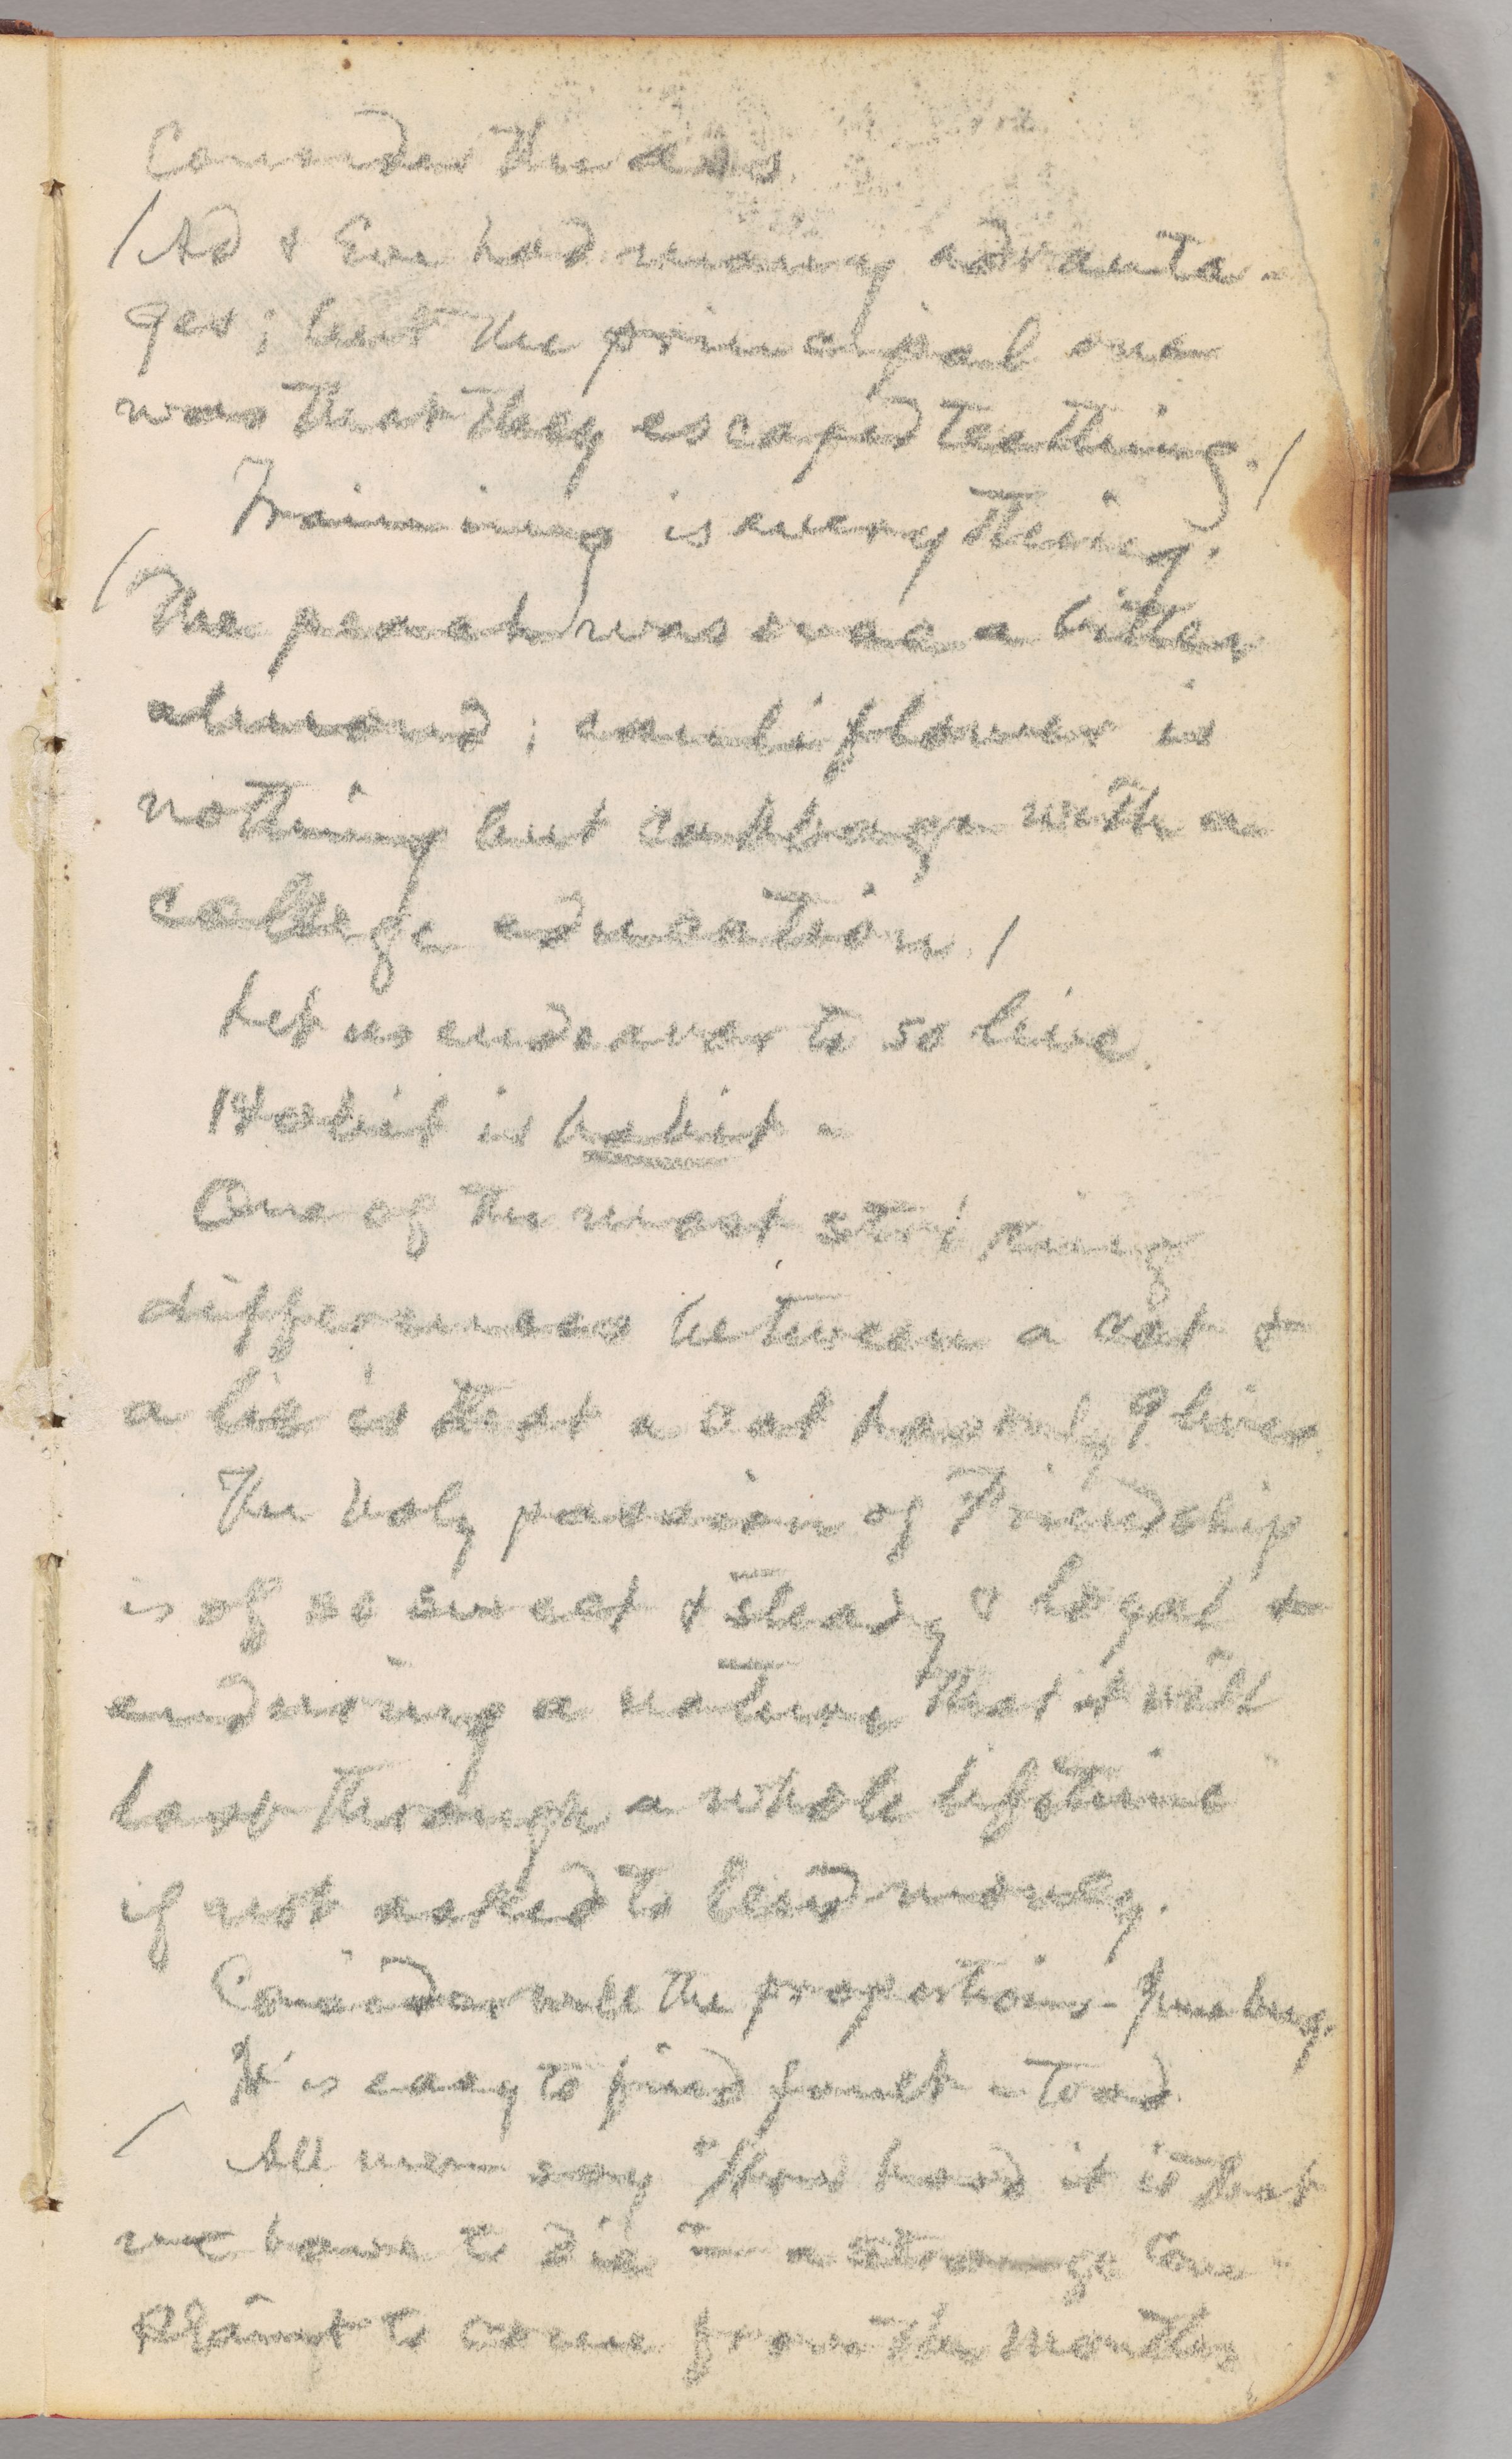 Consider the ass
/Ad & Eve had many advanta-
ges; but the principal one
was that they escaped teething./
Training is everything.
/The peach was once a bitter
almond; cauliflower is
nothing but cabbage with a
college education./
Let us endeavor to so live.
Habit is habit -
One of the most striking
differences between a cat &
a lie is that a cat has only 9 lives.
The holy passion of Friendship
is of so sweet & steady & loyal &
enduring a nature that it will
last through a whole lifetime
if not asked to lend money.
Consider well the proportions - June bug.
It is easy to find fault - toad.
/ All men say "How hard it is that
we have to die" - a strange com
plaint to come from the mouths